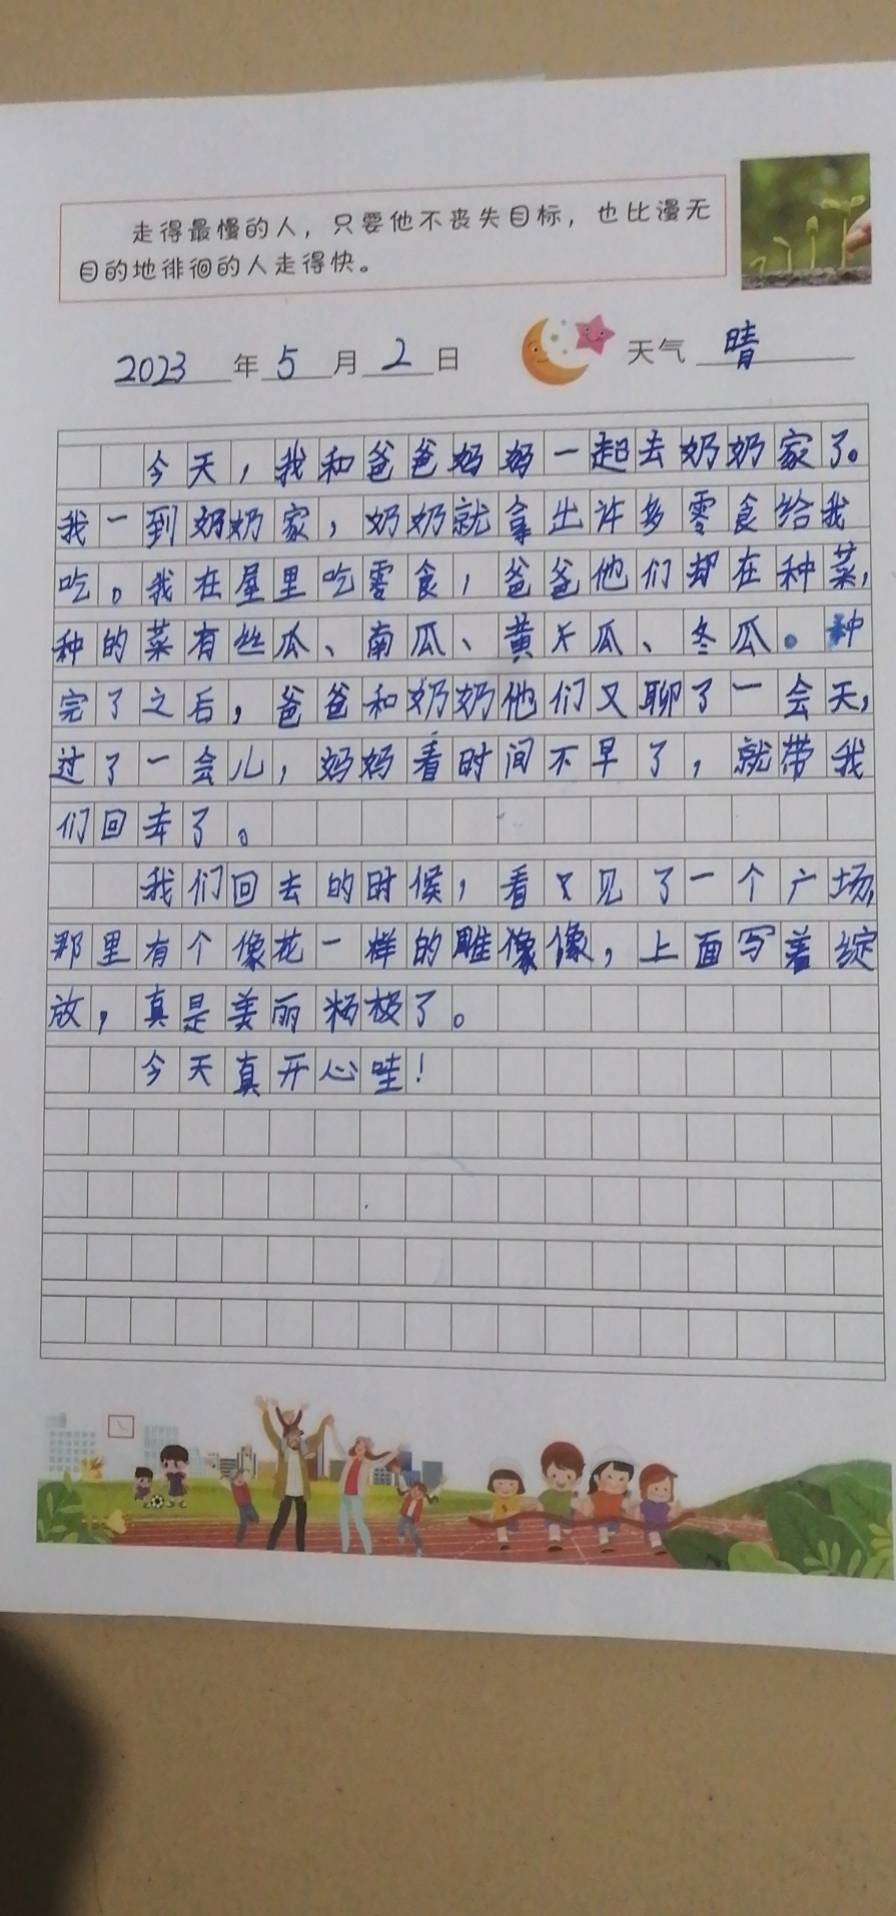 走得最慢的人，只要他不丧失目标，也比漫无
目的地徘徊的人走得快。
2023年5月2日 天气 晴
今天，我和爸爸妈妈一起去奶奶家了。
我一到奶奶家，奶奶就拿出许多零食给我
吃。我在屋里吃零食，爸爸他们却在种菜，
种的菜有丝瓜、南瓜、黄瓜、冬瓜。种
完了之后，爸爸和奶奶他们又聊了一会天，
过了一会儿，妈妈看时间不早了，就带我
们回去了。
我们回去的时候，看见了一个广场，
那里有个像花一样的雕像，上面写着绽
放，真是美丽极了。
今天真开心哇！